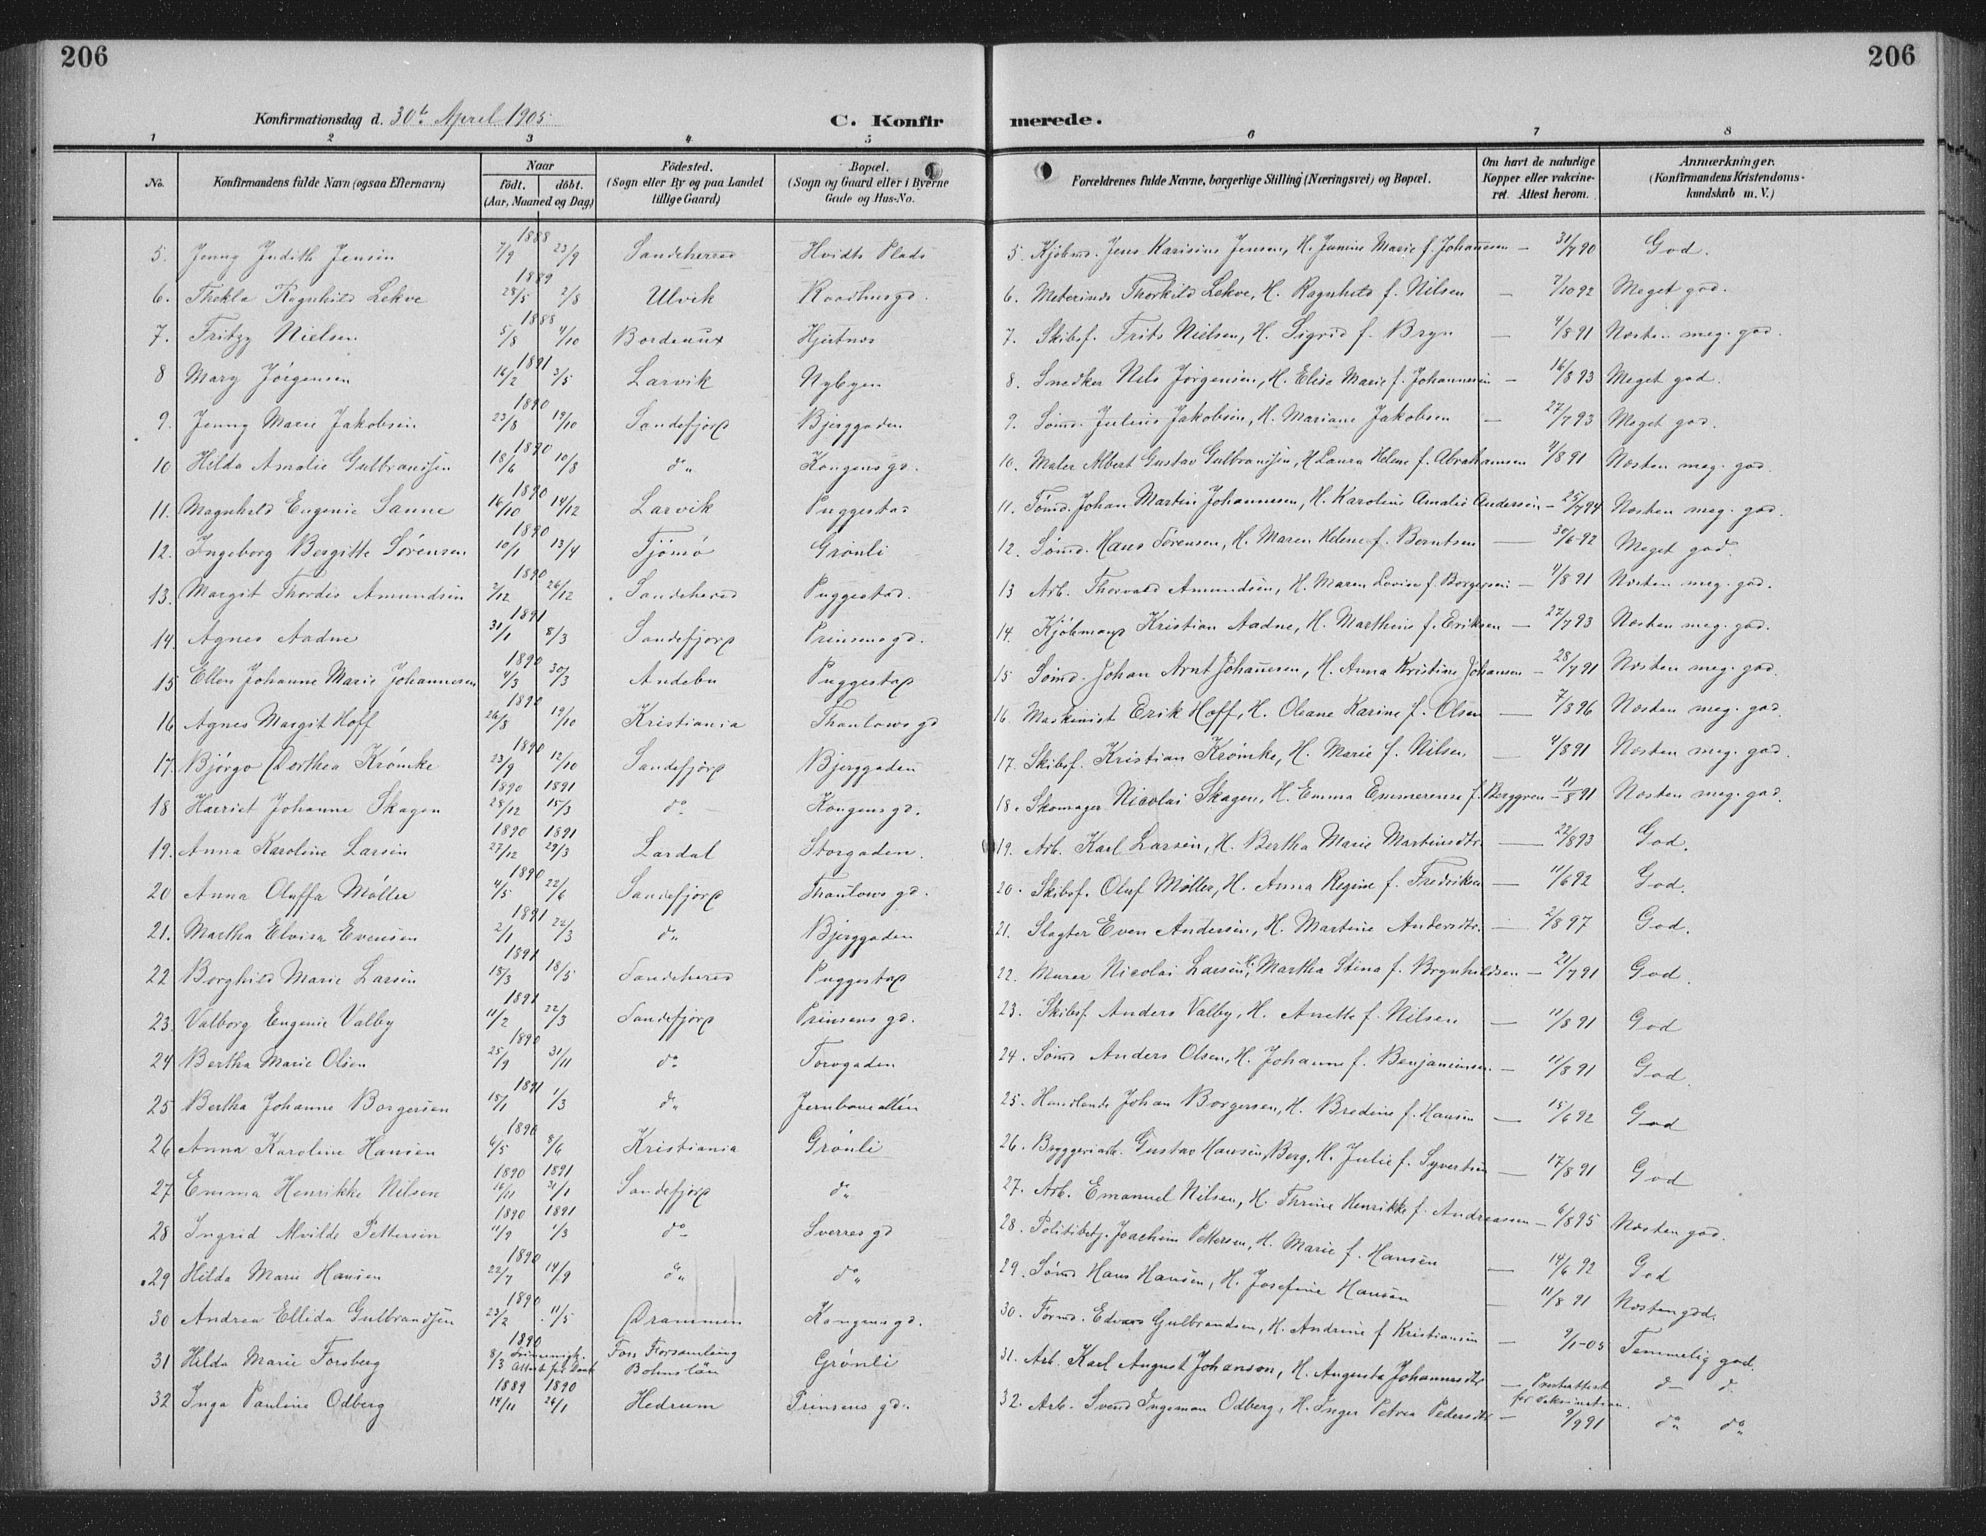 206
206
Konfirmationsdag d. 30te April 1905.
C. Konfirmerede.
1 2 3 4 5 6 7 8
No.
Konfirmandens fulde Navn (ogsaa Efternavn)
Naar
födt. döbt.
(Aar, Maaned og Dag)
Födested.
(Sogn eller By og paa Landet tillige Gaard)
Bopæl.
(Sogn og Gaard eller i Byerne Gade og Hus-No.
Forældrenes fulde Navne, borgerlige Stilling (Næringsvei) og Bopæl.
Om havt de naturlige Kopper eller vakcineret. Attest herom.
Anmærkninger.
(Konfirmandens Kristendomskundskab m. V.)
5. Jenny Judith Jensen 1888 7/9 23/9 Sandeherred Hvidts Plads 5. Kjøbmd. Jens Karisius Jensen, H. Jumine Marie f. Johannesen — 31/7 90 God.
6. Thekla Ragnhild Lekve 1889 28/5 2/8 Ulvik Raadhusgd. 6. Thorkild Lekve, H. Ragnhild f. Nilsen — 7/10 92 Meget god.
7. Fritzy Nielsen 1888 5/8 4/10 Bordeaux Hjertnes 7. Skibsf. Frits Nielsen, H. Sigrid f. Bryn — 4/8 91 Næsten meg. god.
8 Mary Jørgensen 1891 16/2 3/5 Larvik Nybyen 8. Snedker Nils Jørgensen, H. Elise Marie f. Johannesen — 16/8 93 Meget god.
9. Jenny Marie Jakobsen 1890 23/8 19/10 Sandefjord Bjerggaden 9. Sømd. Julius Jakobsen, H. Mariane Jakobsen — 27/7 93 Meget god.
10 Hilda Amalie Gulbrandsen 1890 18/6 10/8 do„ Kongensgd. 10. Maler Albert Gustav Gulbrandsen, H. Laura Helene f. Abrahamsen 4/8 91 Næsten meg. god.
11. Magnhild Eugenie Sanne 1890 16/10 14/12 Larvik Puggestad 11. Tømd. Johan Martin Johannesen, H. Karoline Amalie Andersen — 25/7 94 Næsten meg. god.
12. Ingeborg Bergitte Sørensen 1890 10/1 13/4 Tjømø Grønli 12. Sømd. Hans Sørensen, H. Maren Helene f. Berntsen — 30/6 92 Meget god.
13. Margit Thordis Amundsen 1890 2/12 26/12 Sandeherred Puggestad. 13 Arb. Thorvald Amundsen, H. Maren Lovise f. Borgersen — 4/8 91 Næsten meg. god.
14. Agnes Aadne 1891 31/1 8/3 Sandefjord Prinsensgd. 14. Kjøbmand Kristian Aadne, H. Marthine f. Eriksen — 27/7 93 Næsten meg. god.
15 Ellen Johanne Marie Johannesen 1890 4/3 30/3 Andebu Puggestad 15 Sømd. Johan Arnt Johanesen, H. Anna Kristine Johansen — 28/7 91 Næsten meg. god
16 Agnes Margit Hoff 1890 26/8 19/10 Kristiania Thaulowsgd 16. Maskinist Erik Hoff, H. Oleane Karine f. Olsen — 7/8 96 Næsten meg. god.
17. Bjørgo Dorthea Krømke 1890 23/9 12/10 Sandefjord Bjerggaden 17. Skibsf. Kristian Krømke, H. Marie f. Nilsen — 4/8 91 Næsten meg. god.
18 Harriet Johanne Skagen 1890 28/12 1891 15/3 do Kongensgd. 18. Skomager Nicolai Skagen, H. Emma Emmerense f. Berggren — 11/8 91 Næsten meg. god.
19. Anna Karoline Larsen 1890 27/12 1891 29/3 Lardal Storgaden. 19. Arb. Karl Larsen, H. Bertha Marie Martinsdtr. — 22/8 93 God.
20 Anna Oluffa Møller 1890 4/5 22/6 Sandefjord Thaulowsgd. 20. Skibsf. Oluf Møller, H. Anna Regine f. Fredriksen — 11/6 92 God.
21. Martha Elvira Evensen 1891 2/1 22/3 do„ Bjerggaden 21. Slagter Even Andersen, H. Martine Andersdtr. — 2/8 97 God.
22 Borghild Marie Larsen 1891 18/3 18/5 Sandeherred Puggestad 22. Murer Nicolai Larsen, H. Martha Stina f. Brynhildsen — 21/7 91 God
23. Valborg Eugenie Valby 1891 11/2 22/3 Sandefjord Prinsensgd. 23. Skibsf. Anders Valby, H. Anette f. Nilsen — 11/8 91 God
24 Bertha Marie Olsen 1890 25/9 31/11 do Torvgaden 24. Sømd Anders Olsen, H. Johanne f. Benjaminsen — 11/8 91 God.
25 Bertha Johanne Borgersen 1891 15/1 1/3 do„ Jernbanealleen 25. Handlende Johan Borgersen, H. Bredine f. Hansen — 15/6 92 God
26 Anna Karoline Hansen 1890 6/5 8/6 Kristiania Grønli 26. Bryggeriarb. Gustav Hansen Berg, H. Julie f. Syvertsen — 17/8 91 God
27 Emma Henrikke Nilsen 1890 16/11 1891 21/1 Sandefjord do„ 27. Arb. Emanuel Nilsen, H. Thrine Henrikke f. Andreassen — 6/8 95 Næsten god.
28 Ingrid Alvilde Pettersen 1890 11/9 1891 1/3 do Sverresgd 28. Politibetj. Joachim Pettersen, H. Marie f. Hansen — 14/6 92 God
29 Hilda Marie Hansen 1890 22/7 14/9 do„ do„ 29. Sømd Hans Hansen, H. Josefine Hansen — 11/8 91 Næsten god.
30 Andrea Ellida Gulbrandsen 1890 23/2 11/5 Drammen Kongensgd. 30. Formd. Edvard Gulbrandsen, H. Andrine f Kristiansen — 9/1-05 Temmelig god.
31 Hilda Marie Forsberg 1890 8/3 Attest for Daab Foss Forsamling Bohuslän Grønli 31. Arb. Karl August Johanson, H. Augusta Johannesdtr — Prestattest for vaksination. do do
32 Inga Pauline Odberg 1889 14/11 1890 26/1 Hedrum Prinsensgd. 32. Arb. Svend Ingeman Odberg, H. Inger Petrea Pedersdtr — 9/9 91 do„ do„